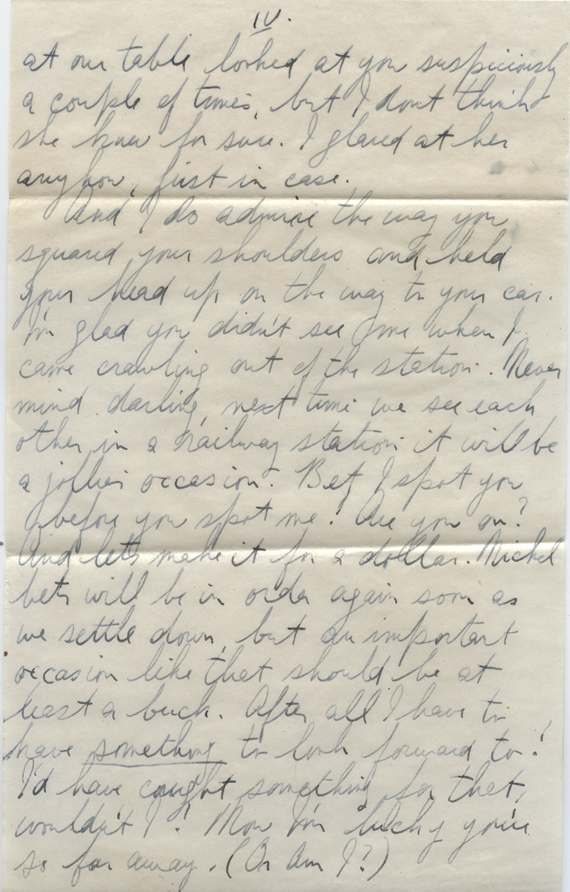 IV.
at our table looked at you suspiciously
a couple of times, but I dont think
she knew for sure. I glared at her
anyhow, just in case.
And I do admire the way you
squared your shoulders and held
your head up on the way to your car.
I'm glad you didn't see me when I
came crawling out of the station. Never
mind darling, next time we see each
other in a railway station it will be
a jollier occasion. Bet I spot you
before you spot me! Are you on?
And let's make it for a dollar. Nickel
bets will be in order again soon as
we settle down, but an important
occasion like that should be at
least a buck. After all I have to
have something to look forward to!
I'd have caught something for that,
wouldn't I! Now I'm lucky you're
so far away. (Or Am I?)